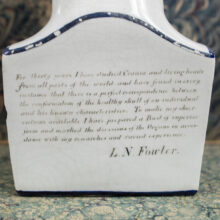 For thirty years I have studied Crania and living heads
from all parts of the world, and have found in every
instance that there is a perfect correspondence between
the conformation of the healthy skull of an individual
and his known characteristics. To make my obser-
vations available I have prepared a Bust of superior
form and marked the divisions of the Organs in accor-
dance with my researches and varied experience.
L. N. Fowler.